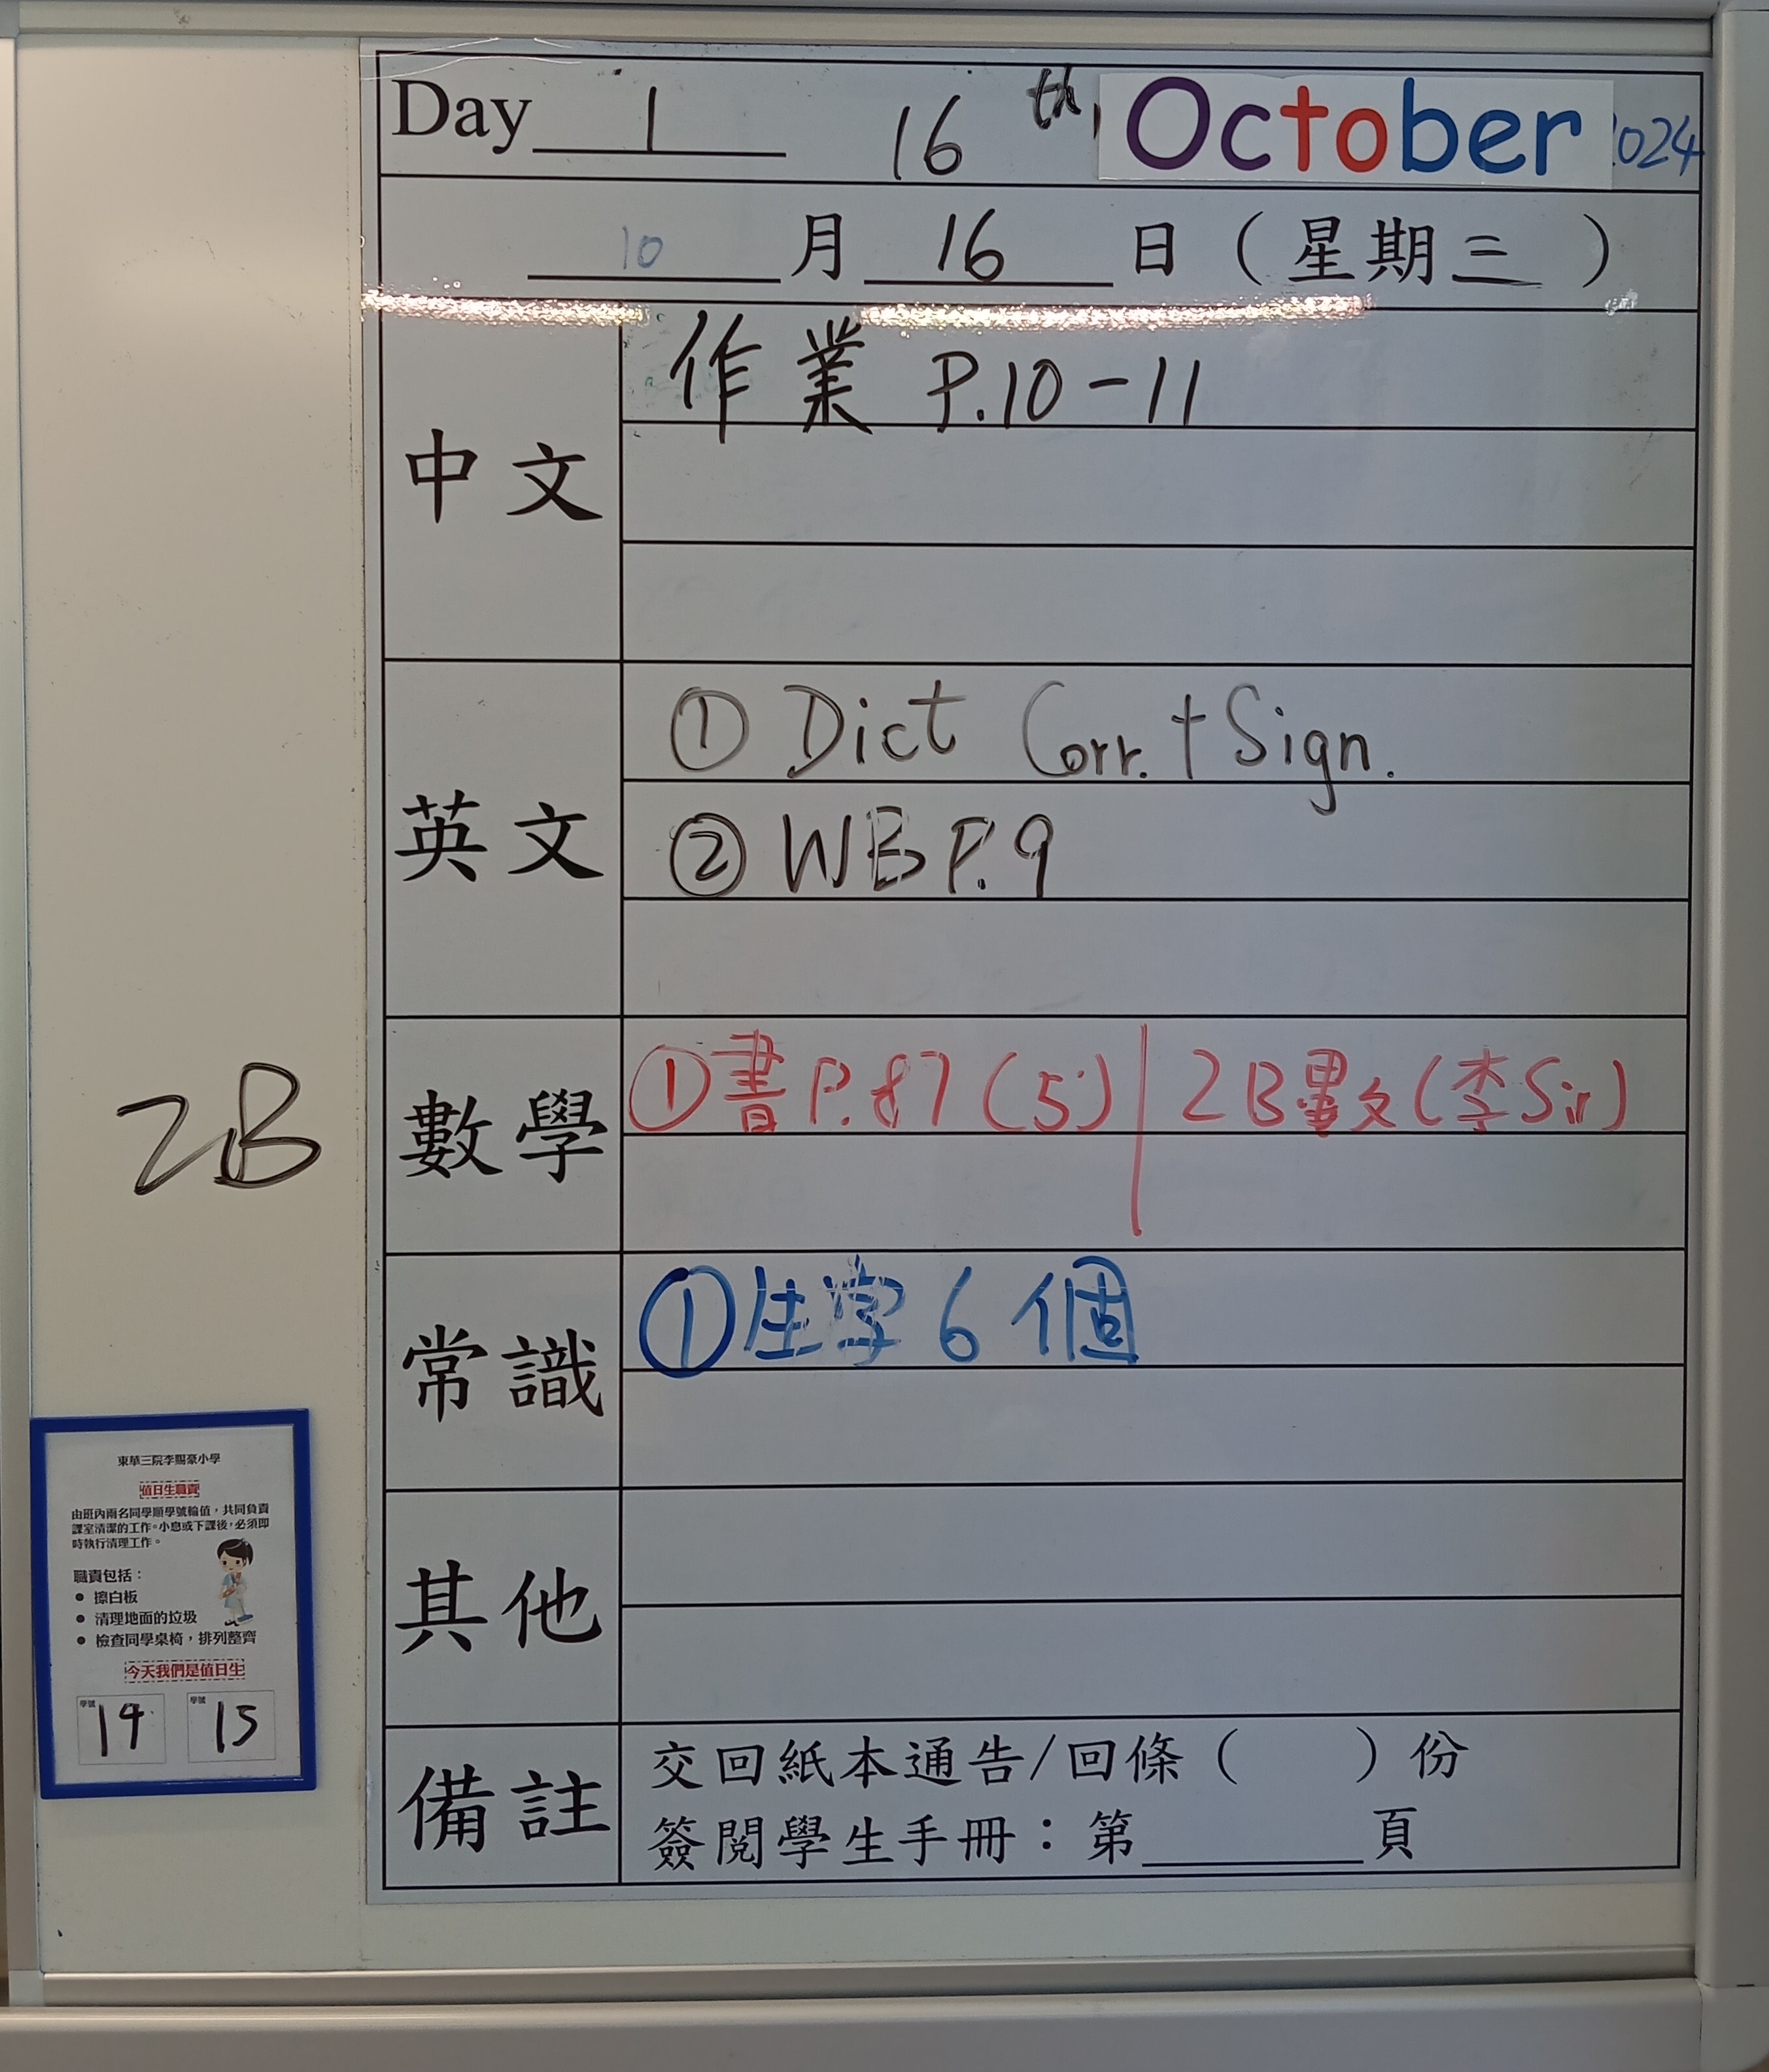 Day 1 16th, October 2024
10 月 16 日（星期三）
中文
作業 P.10-11
英文
① Dict Corr. + Sign.
② WB P.9
數學
① 書 P.87 (5) | 2B 數 (李Sir)
常識
① 生字 6 個
其他
備註
交回紙本通告/回條（ ）份
簽閱學生手冊：第______頁
2B
東華三院李賜豪小學
值日生職責
由班內兩名同學順學號輪值，共同負責
課室清潔的工作。小息或下課後，必須即
時執行清理工作。
職責包括：
● 擦白板
● 清理地面的垃圾
● 檢查同學桌椅，排列整齊
今天我們是值日生
學號 14 學號 15